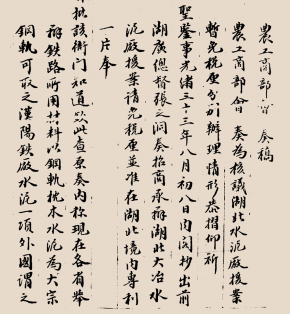 農工商部會 奏稿
農工商部會 奏為核議湖北水泥廠援案
暫免稅厘分別辦理情形恭摺仰祈
聖鑒事光緒三十三年八月初八日內閣抄出前
湖廣總督張之洞奏招商承辦湖北大冶水
泥廠援案請免稅厘並准在湖北境內專利
一片奉
批該衙門知道欽此查原奏內稱現在各省舉
辦鐵路所用材料以鋼軌枕木水泥為大宗
鋼軌可取之漢陽鐵廠水泥一項外國謂之